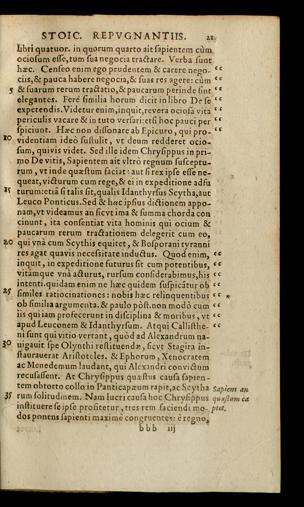 STOIC. REPVGNANTIIS. 22
libri quatuor. in quorum quarto ait sapientem cùm
ociosum esse, tum sua negocia tractare. Verba sunt
hæc. Censeo enim ego prudentem & carere nego-
ciis, & pauca habere negocia, & suas res agere: cùm
5 & suarum rerum tractatio, & paucarum perinde sint
elegantes. Ferè similia horum dicit in libro De se
expetendis. Videtur enim, inquit, reuera ociosa vita
periculis vacare & in tuto versari: etsi hoc pauci per
spiciunt. Hæc non dissonare ab Epicuro, qui pro-
10 uidentiam ideò sustulit, vt deum redderet ocio-
sum, quivis videt. Sed ille idem Chrysippus in pri-
mo De vitis, Sapientem ait vltrò regnum susceptu-
rum, vt inde quæstum faciat: aut si rex ipse esse ne-
queat, victurum cum rege, & ei in expeditione adfu
15 turum: etiā si talis sit, qualis Idanthyrsus Scytha, aut
Leuco Ponticus. Sed & hæc ipsius dictionem appo-
nam, vt videamus an sicvt ima & summa chorda con
cinunt, ita consentiat vita hominis qui ocium &
paucarum rerum tractationem delegerit cum eo,
20 qui vnà cum Scythis equitet, & Bosporani tyranni
res agat quavis necessitate inductus. Quod enim,
inquit, in expeditione futurus sit cum potentibus,
vitámque vnà acturus, rursum considerabimus, his
intenti. quidam enim ne hæc quidem suspicātur ob
25 similes ratiocinationes: nobis hæc relinquentibus
ob similia argumenta. & paulo pòst. non modò cum
iis qui iam profecerunt in disciplina & moribus, vt
apud Leuconem & Idanthyrsum. Atqui Callisthe-
ni sunt qui vitio vertant, quòd ad Alexandrum na-
30 uigauit spe Olynthi restituendæ, sicvt Stagira in-
staurauerat Aristoteles. & Ephorum, Xenocratem
ac Menedemum laudant, qui Alexandri convictum
recusassent. At Chrysippus quæstus causa sapien-
tem obtorto collo in Panticapæum rapit, ac Scytha
35 rum solitudinem. Nam lucri causa hoc Chrysippus
instituere se ipse profitetur, tres rem faciendi mo-
dos ponens sapienti maximè congruentes: è regno,
Sapiens an
quæstum ca
ptet.
bbb iij